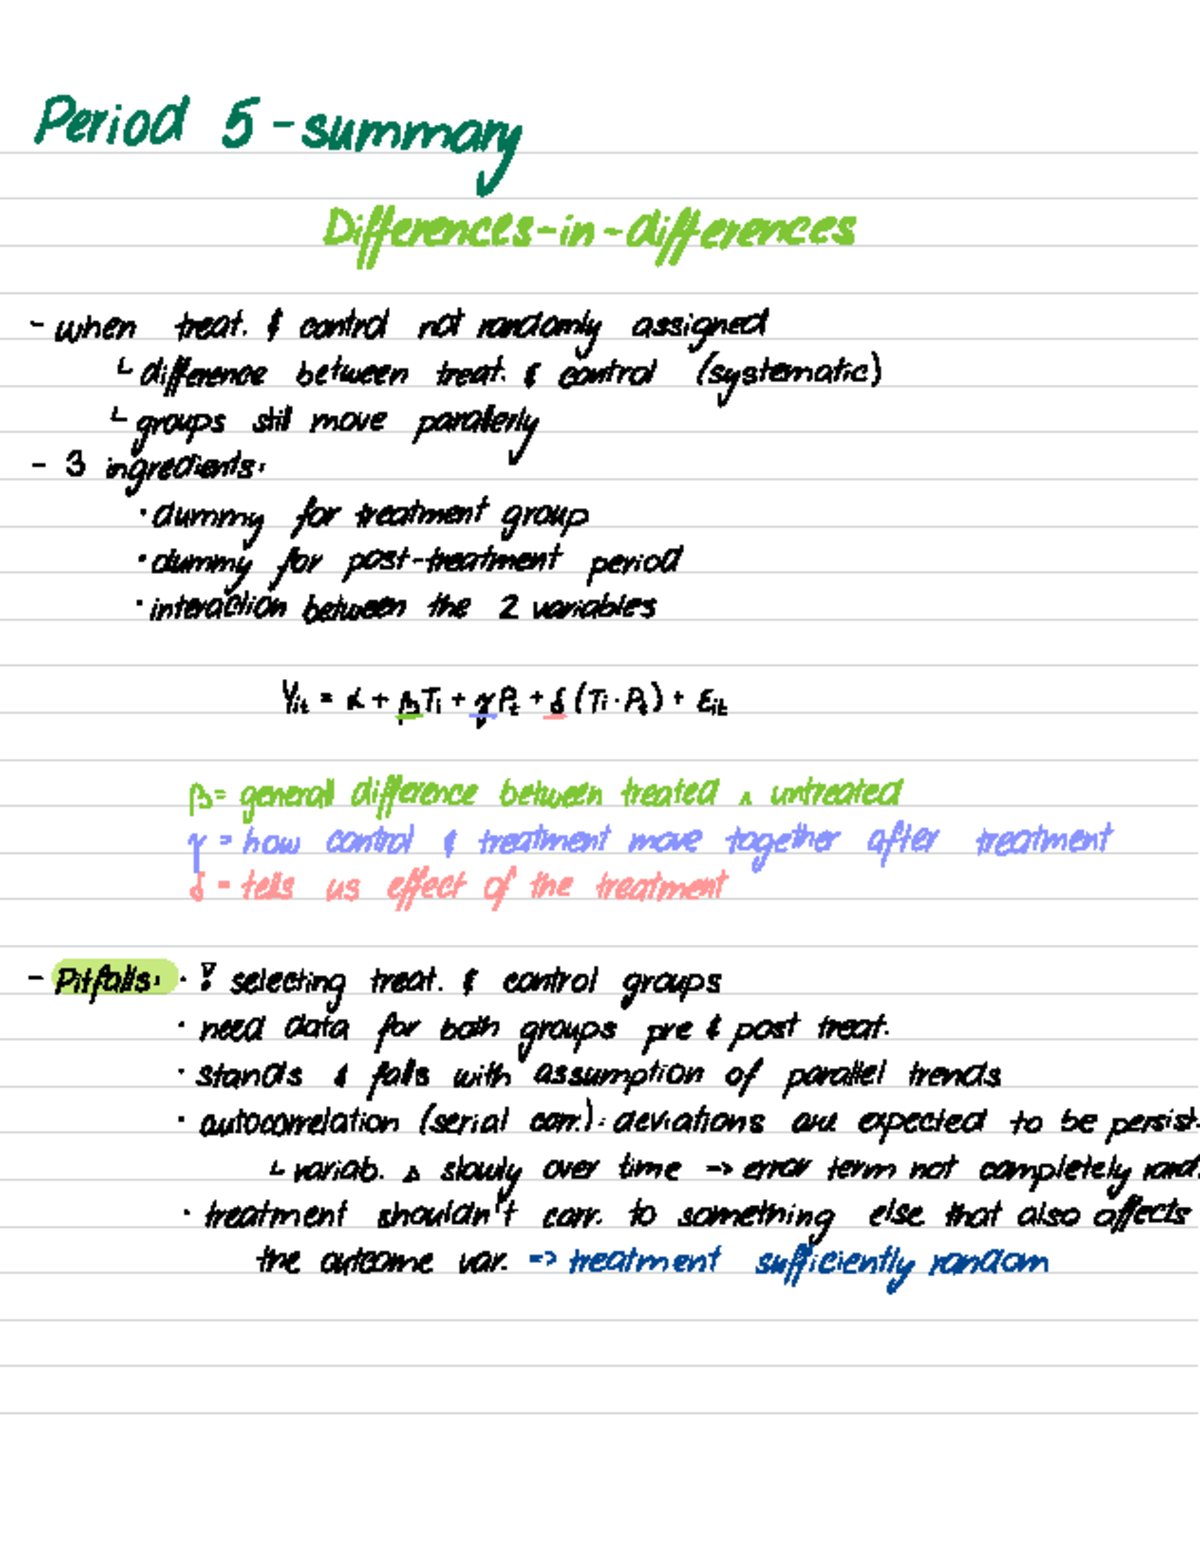 Period 5 - summary
Differences-in-differences
- when treat. & control not randomly assigned
└ difference between treat. & control (systematic)
└ groups still move parallerly
- 3 ingredients:
· dummy for treatment group
· dummy for post-treatment period
· interaction between the 2 variables
Yit = α + βTi + γPt + δ(Ti·Pt) + εit
β = general difference between treated ∧ untreated
γ = how control & treatment move together after treatment
δ = tells us effect of the treatment
- Pitfalls: · ! selecting treat. & control groups
· need data for both groups pre & post treat.
· stands & falls with assumption of parallel trends
· autocorrelation (serial corr.): deviations are expected to be persist.
└ variab. Δ slowly over time -> error term not completely
· treatment shouldn't corr. to something else that also affects
the outcome var. => treatment sufficiently random